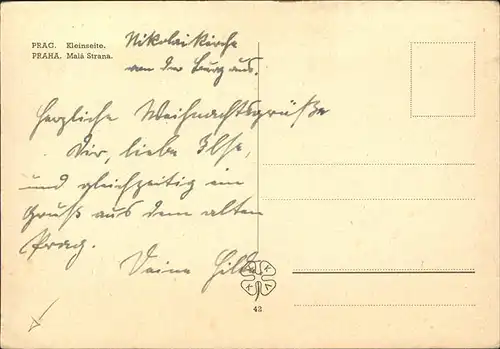 PRAG. Kleinseite.
PRAHA. Malá Strana.
Nikolaikirche
von der Burg aus.
Herzliche Weihnachtsgrüße
Dir, liebe Ilse,
und gleichzeitig ein
Gruß aus dem alten
Prag.
Deine Hilde
K V
42